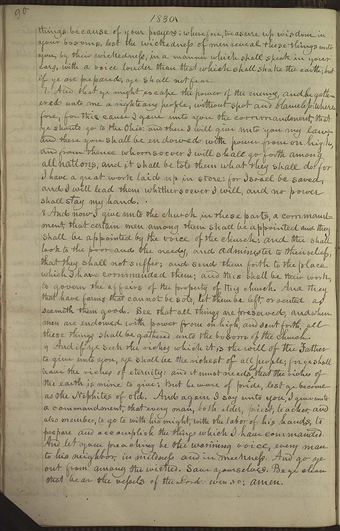 90
1830
things because of your prayers: wherefore, treasure up wisdom in
your bosoms, lest the wickedness of men reveal these things unto
you, by their wickedness, in a manner which shall speak in your
ears, with a voice louder than that which shall shake the earth; but
if ye are prepared, ye shall not fear.
7 And that ye might escape the power of the enemy, and be gath-
ered unto me a righteous people, without spot and blameless: where-
fore, for this cause I gave unto you the commandment, that
ye should go to the Ohio: and there I will give unto you my law;
and there you shall be endowed with power from on high,
and from thence, whomsoever I will shall go forth among
all nations, and it shall be told them what they shall do; for
I have a great work laid up in store: for Israel be saved,
and I will lead them whithersoever I will, and no power
shall stay my hand.
8 And now I give unto the church in these parts, a command-
ment, that certain men among them shall be appointed and they
shall be appointed by the voice of the church: and they shall
look to the poor and the needy, and administer to their relief,
that they shall not suffer; and send them forth to the place
which I have commanded them; and this shall be their work,
to govern the affairs of the property of this church. And they
that have farms that cannot be sold, let them be left or rented as
seemeth them good. See that all things are preserved, and when
men are endowed with power from on high, and sent forth, all
these things shall be gathered unto the bosom of the church.
9 And if ye seek the riches which it is the will of the Father
to give unto you, ye shall be the richest of all people; for ye shall
have the riches of eternity: and it must needs be that the riches of
the earth is mine to give: but beware of pride, lest ye become
as the Nephites of old. And again I say unto you, I give unto
a commandment, that every man, both elder, priest, teacher, and
also member, go to with his might, with the labor of his hands, to
prepare and accomplish the things which I have commanded.
And let your preaching be the warning voice, every man
to his neighbor, in mildness and in meekness. And go ye
out from among the wicked. Save yourselves. Be ye clean
that bear the vessels of the Lord: even so; amen.